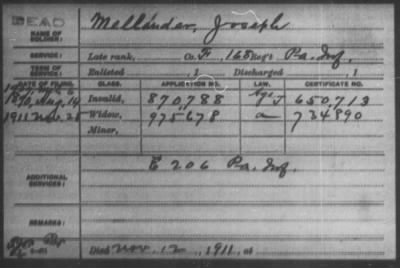 DEAD
NAME OF SOLDIER: Mellánder, Joseph
SERVICE: Late rank, Co. F, 168 Reg't Pa. Inf.
TERM OF SERVICE: Enlisted , 1 Discharged , 1
DATE OF FILING. CLASS. APPLICATION NO. LAW. CERTIFICATE NO.
1890, Aug. 14 Invalid, 870,788 J 650,713
1911 Nov. 28 Widow, 975,678 a 734,890
Minor,
ADDITIONAL SERVICES: E 206 Pa. Inf.
REMARKS:
Died Nov. 12, 1911, at